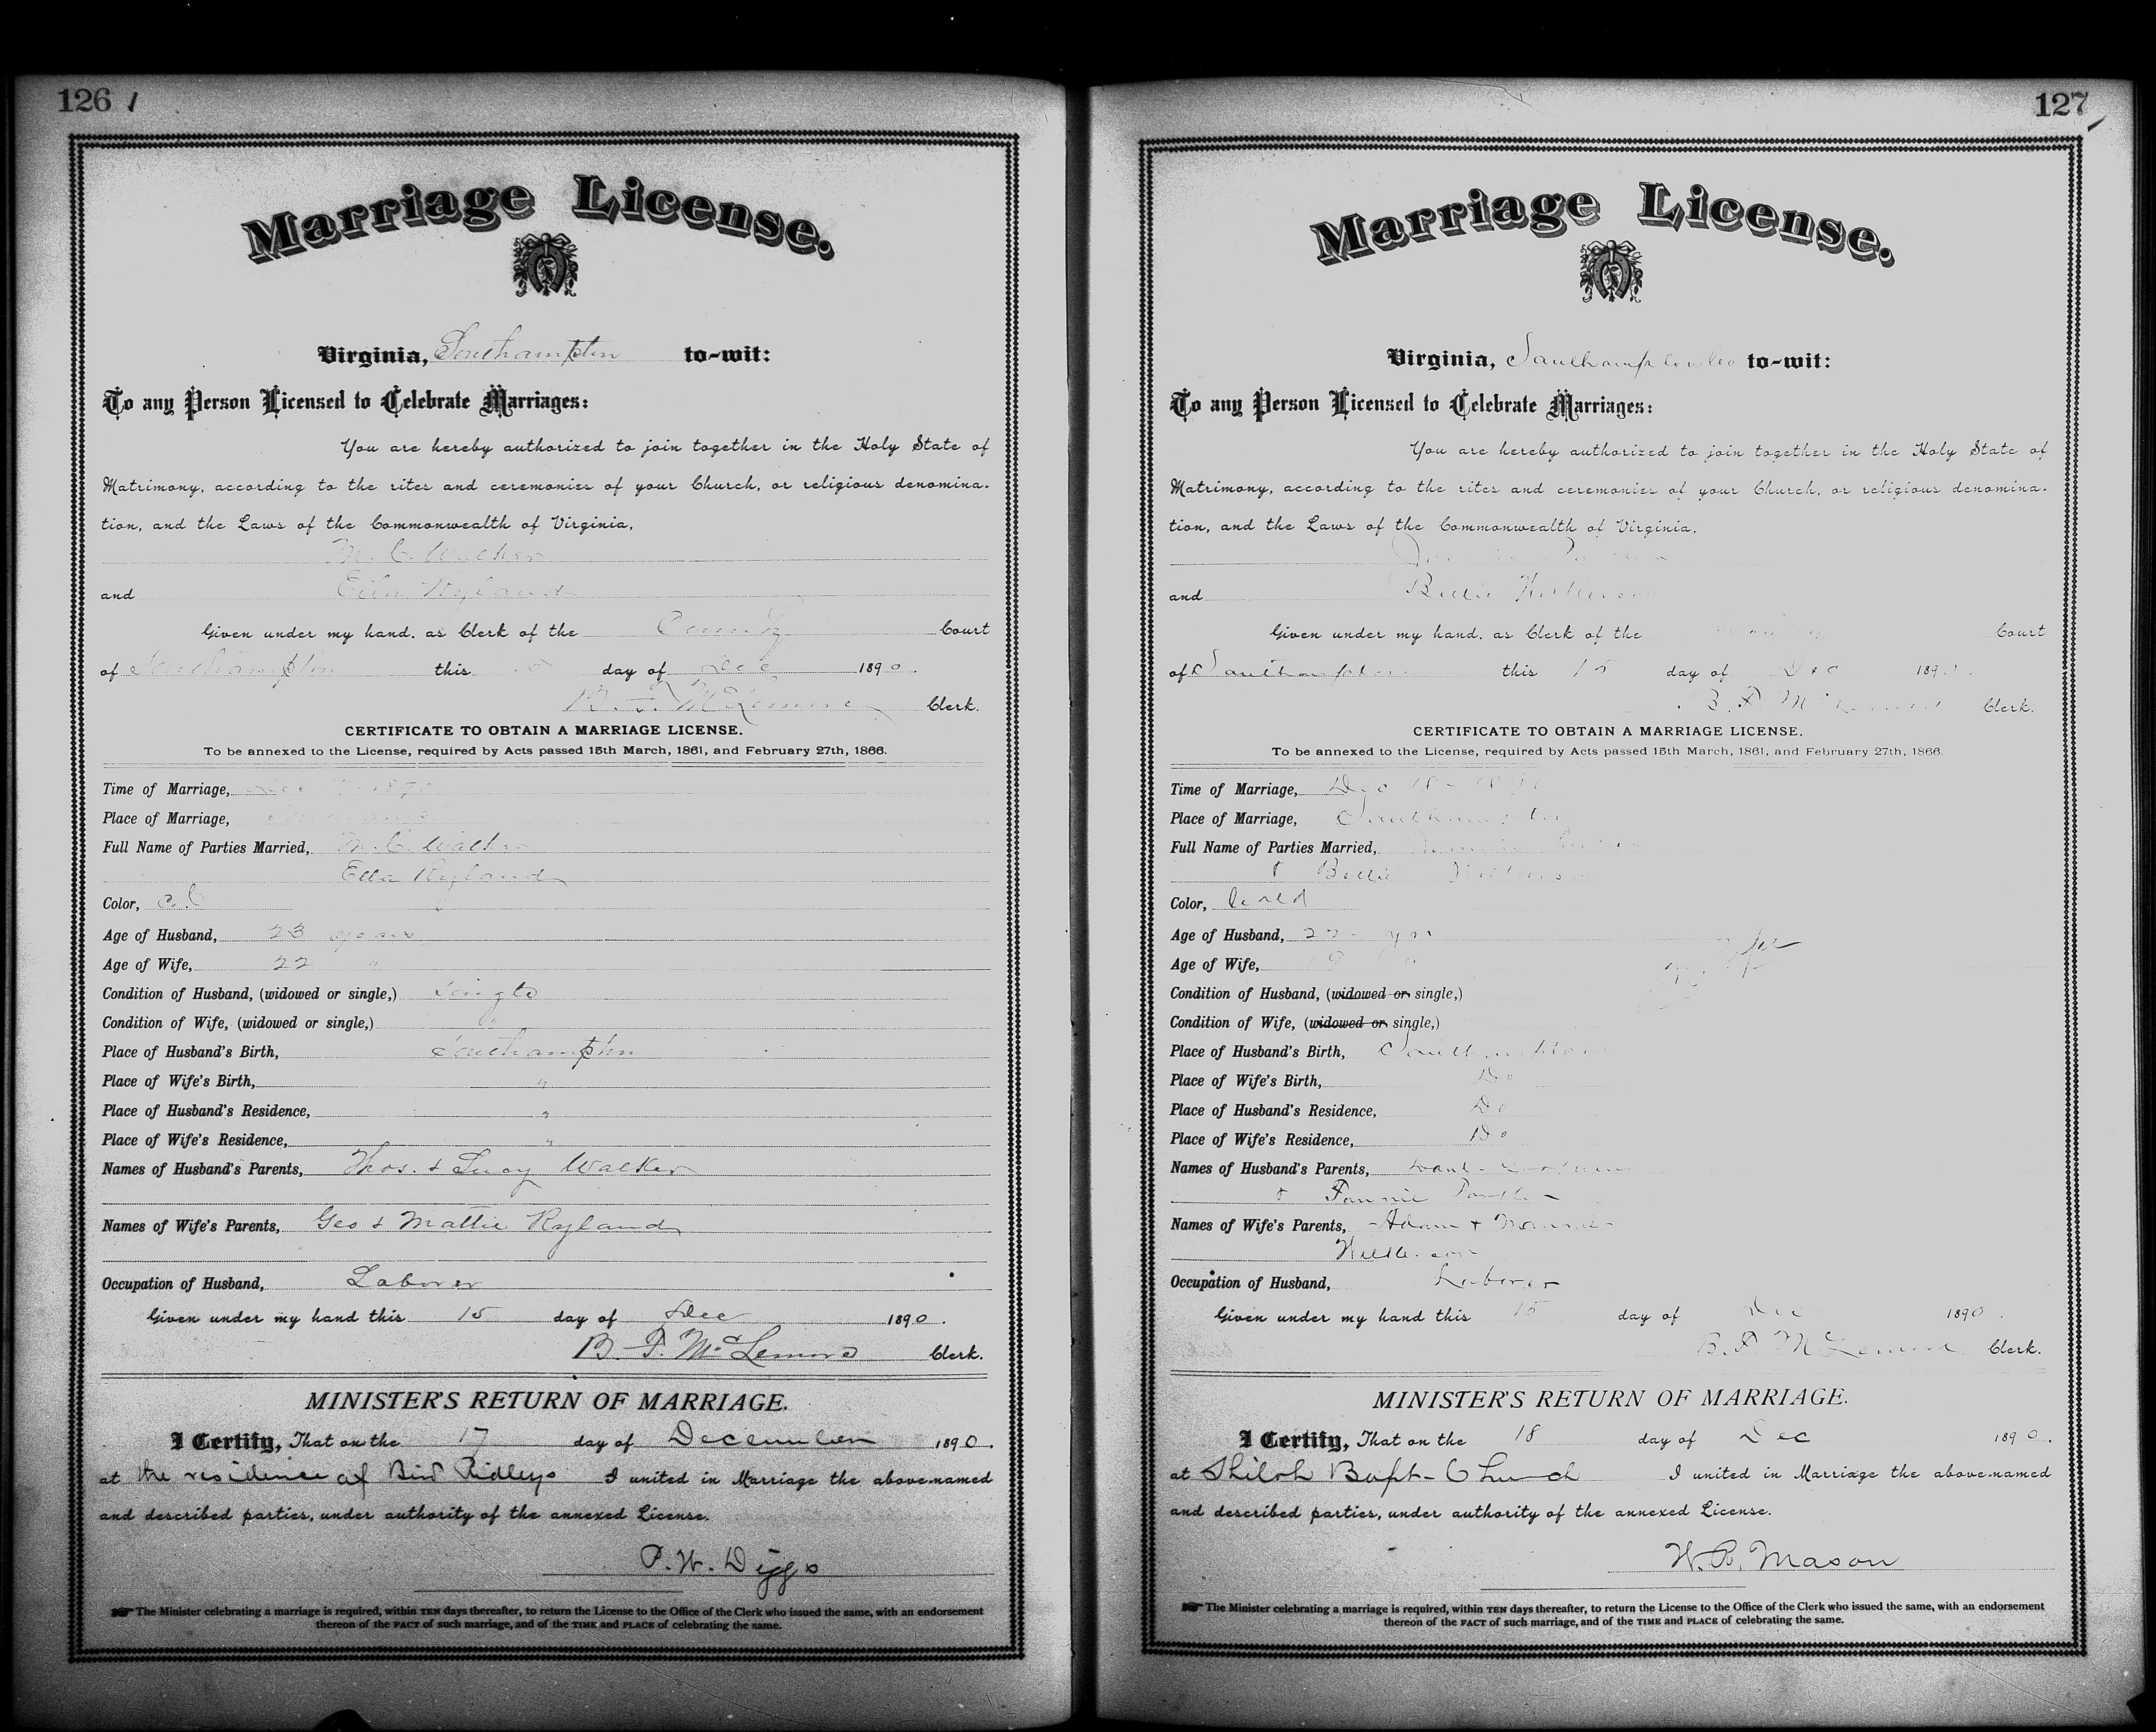 126
Marriage License.
Virginia, Southampton to-wit:
To any Person Licensed to Celebrate Marriages:
You are hereby authorized to join together in the Holy State of
Matrimony, according to the rites and ceremonies of your Church, or religious denomina-
tion, and the Laws of the Commonwealth of Virginia,
M. C. Walker
and Ella Ryland
Given under my hand, as Clerk of the County Court
of Southampton this day of Dec 1890.
B. F. McLemore Clerk.
CERTIFICATE TO OBTAIN A MARRIAGE LICENSE.
To be annexed to the License, required by Acts passed 15th March, 1861, and February 27th, 1866.
Time of Marriage,
Place of Marriage,
Full Name of Parties Married, M. C. Walker
Ella Ryland
Color, Col
Age of Husband, 23 years
Age of Wife, 22 "
Condition of Husband, (widowed or single,) Single
Condition of Wife, (widowed or single,) "
Place of Husband's Birth, Southampton
Place of Wife's Birth, "
Place of Husband's Residence, "
Place of Wife's Residence, "
Names of Husband's Parents, Thos. & Lucy Walker
Names of Wife's Parents, Geo & Mattie Ryland
Occupation of Husband, Laborer
Given under my hand this 15 day of Dec 1890.
B. F. McLemore Clerk.
MINISTER'S RETURN OF MARRIAGE.
I Certify, That on the 17 day of December 1890.
at the residence of Bird Ridleys I united in Marriage the above-named
and described parties, under authority of the annexed License.
P. W. Diggs
The Minister celebrating a marriage is required, within TEN days thereafter, to return the License to the Office of the Clerk who issued the same, with an endorsement
thereon of the FACT of such marriage, and of the TIME and PLACE of celebrating the same.
127
Marriage License.
Virginia, Southampton Co to-wit:
To any Person Licensed to Celebrate Marriages:
You are hereby authorized to join together in the Holy State of
Matrimony, according to the rites and ceremonies of your Church, or religious denomina-
tion, and the Laws of the Commonwealth of Virginia,
and
Given under my hand, as Clerk of the Court
of Southampton this 15 day of Dec 189
B. F. McLemore Clerk.
CERTIFICATE TO OBTAIN A MARRIAGE LICENSE.
To be annexed to the License, required by Acts passed 15th March, 1861, and February 27th, 1866.
Time of Marriage, Dec 18
Place of Marriage, Southampton
Full Name of Parties Married,
&
Color, Cold
Age of Husband, 22 yrs
Age of Wife,
Condition of Husband, (widowed or single,)
Condition of Wife, (widowed or single,)
Place of Husband's Birth, Southampton
Place of Wife's Birth, Do
Place of Husband's Residence, Do
Place of Wife's Residence, Do
Names of Husband's Parents,
& Fannie
Names of Wife's Parents, Adam &
Occupation of Husband, Laborer
Given under my hand this 15 day of Dec 1890.
B. F. McLemore Clerk.
MINISTER'S RETURN OF MARRIAGE.
I Certify, That on the 18 day of Dec 1890.
at Shiloh Bapt- Church I united in Marriage the above-named
and described parties, under authority of the annexed License.
W. R. Mason
The Minister celebrating a marriage is required, within TEN days thereafter, to return the License to the Office of the Clerk who issued the same, with an endorsement
thereon of the FACT of such marriage, and of the TIME and PLACE of celebrating the same.